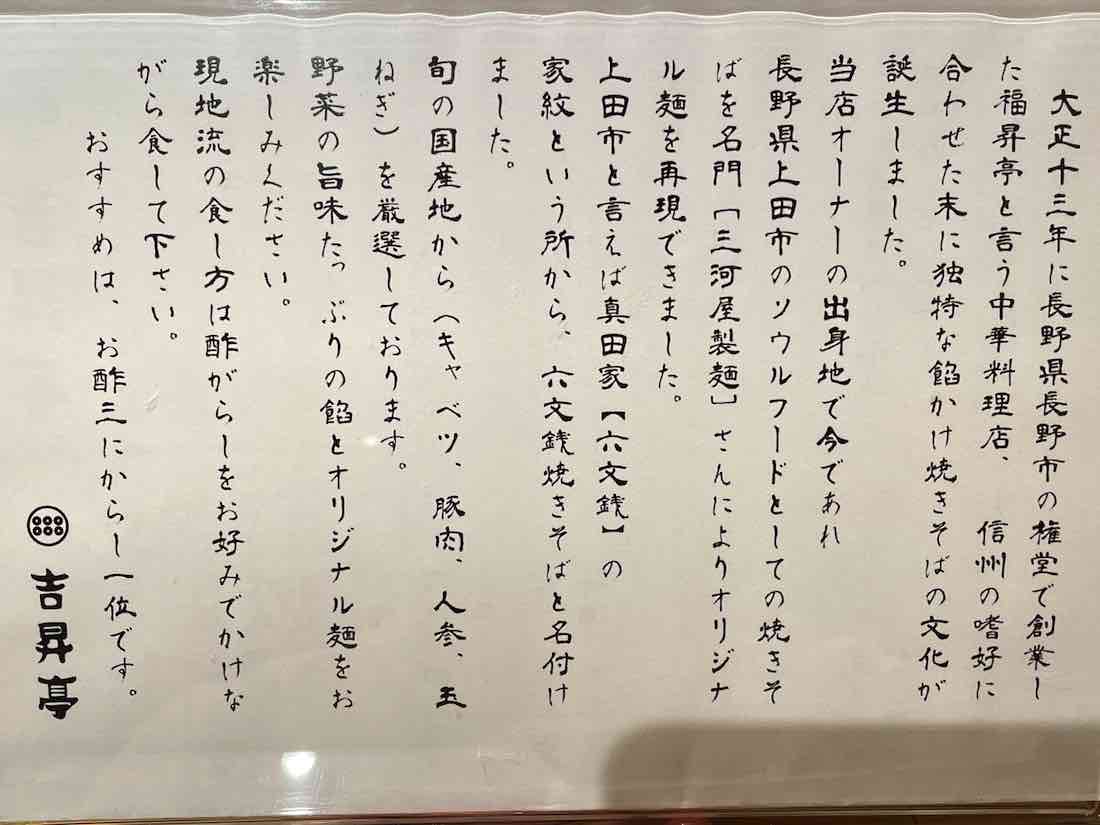 大正十三年に長野県長野市の権堂で創業し
た福昇亭と言う中華料理店、信州の嗜好に
合わせた末に独特な餡かけ焼きそばの文化が
誕生しました。
当店オーナーの出身地で今であれ
長野県上田市のソウルフードとしての焼きそ
ばを名門［三河屋製麺］さんによりオリジナ
ル麺を再現できました。
上田市と言えば真田家【六文銭】の
家紋という所から、六文銭焼きそばと名付け
ました。
旬の国産地から（キャベツ、豚肉、人参、玉
ねぎ）を厳選しております。
野菜の旨味たっぷりの餡とオリジナル麺をお
楽しみください。
現地流の食し方は酢がらしをお好みでかけな
がら食して下さい。
おすすめは、お酢三にからし一位です。
吉昇亭